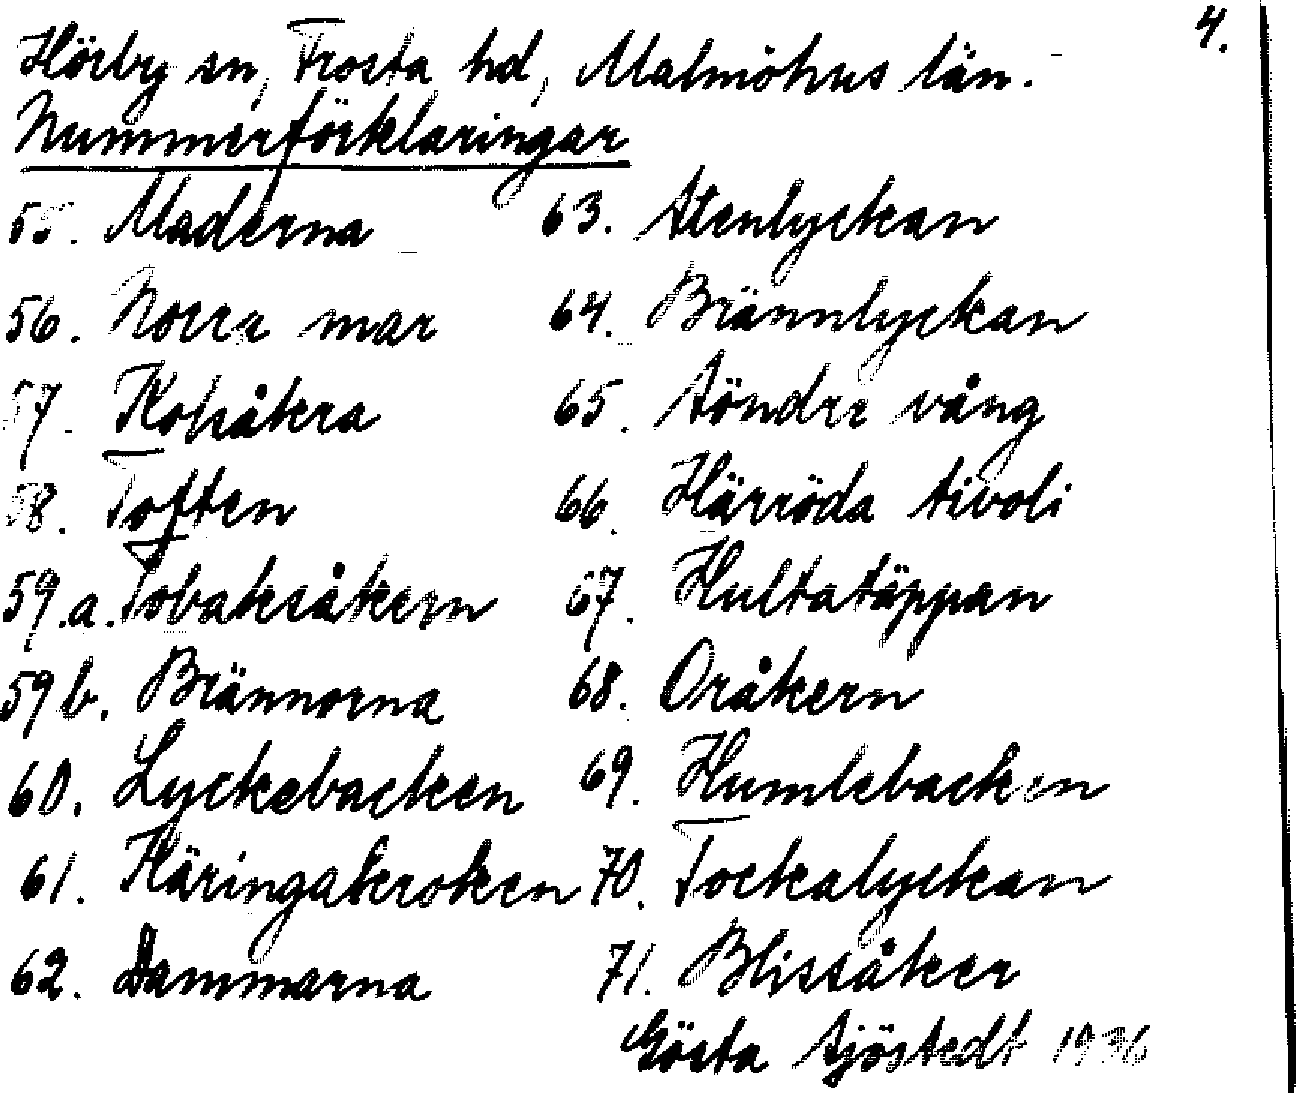 4.
Hörby sn, Frosta hd, Malmöhus län.
Nummerförklaringar
55. Maderna
56. Norra mar
57. Kohåkra
58. Toften
59.a. Tobaksåkern
59 b. Brännorna
60. Lyckebacken
61. Häringakroken
62. Dammarna
63. Stenlyckan
64. Brännlyckan
65. Söndre vång
66. Härröda tivoli
67. Hultatäppan
68. Oråkern
69. Humlebacken
70. Tockalyckan
71. Blissåker
Gösta Sjöstedt 1936